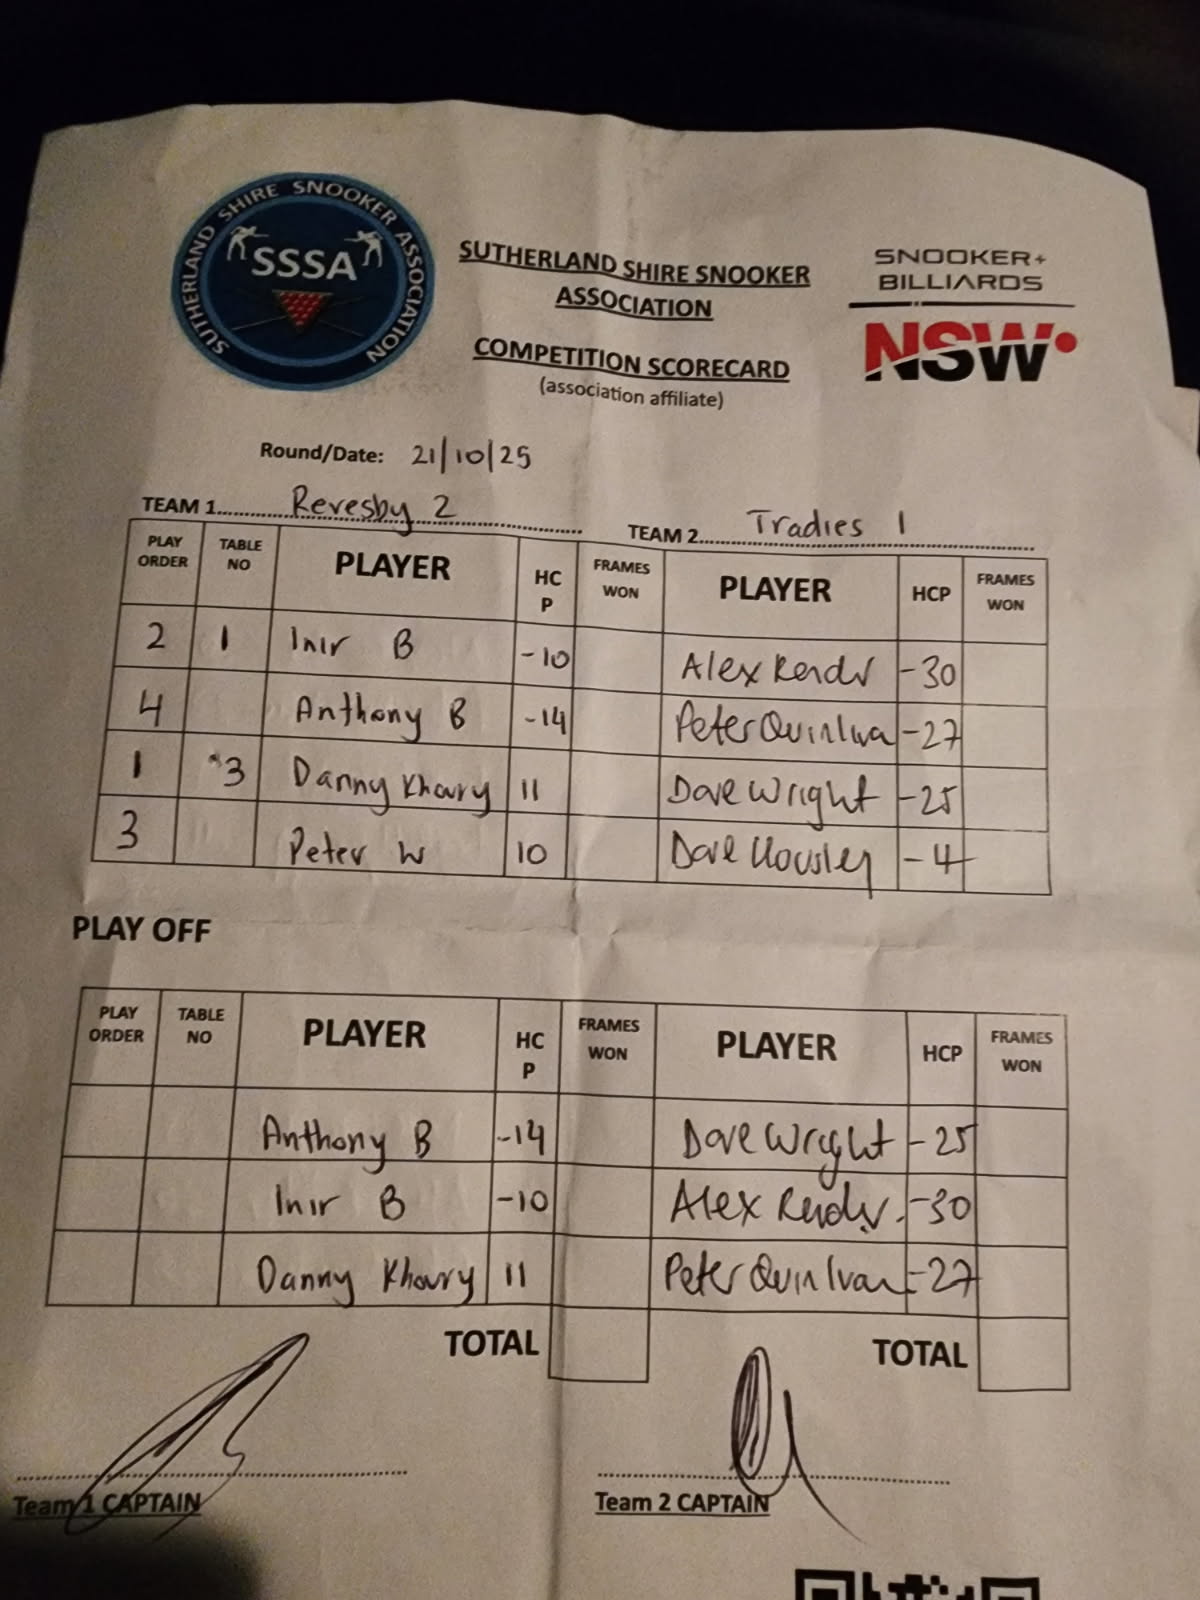 SUTHERLAND SHIRE SNOOKER ASSOCIATION
SSSA
SUTHERLAND SHIRE SNOOKER
ASSOCIATION
COMPETITION SCORECARD
(association affiliate)
SNOOKER+
BILLIARDS
NSW
Round/Date: 21/10/25
TEAM 1 Revesby 2 TEAM 2 Tradies 1
PLAY ORDER TABLE NO PLAYER HCP FRAMES WON PLAYER HCP FRAMES WON
2 1 Inir B -10 Alex -30
4 Anthony B -14 Peter -27
1 3 Danny Khoury 11 Dave Wright -25
3 Peter W 10 Dave Housley -4
PLAY OFF
PLAY ORDER TABLE NO PLAYER HCP FRAMES WON PLAYER HCP FRAMES WON
Anthony B -14 Dave Wright -25
Inir B -10 Alex -30
Danny Khoury 11 Peter Quinlvan -27
TOTAL TOTAL
Team 1 CAPTAIN Team 2 CAPTAIN